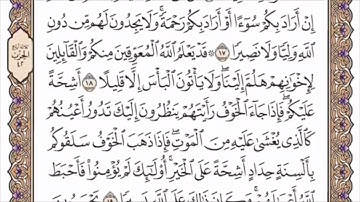 إِنْ أَرَادَ بِكُمْ سُوٓءًا أَوْ أَرَادَ بِكُمْ رَحْمَةً ۚ وَلَا يَجِدُونَ لَهُم مِّن دُونِ
ٱللَّهِ وَلِيًّا وَلَا نَصِيرًا ١٧ ۞ قَدْ يَعْلَمُ ٱللَّهُ ٱلْمُعَوِّقِينَ مِنكُمْ وَٱلْقَآئِلِينَ
لِإِخْوَٰنِهِمْ هَلُمَّ إِلَيْنَا ۖ وَلَا يَأْتُونَ ٱلْبَأْسَ إِلَّا قَلِيلًا ١٨ أَشِحَّةً
عَلَيْكُمْ ۖ فَإِذَا جَآءَ ٱلْخَوْفُ رَأَيْتَهُمْ يَنظُرُونَ إِلَيْكَ تَدُورُ أَعْيُنُهُمْ
كَٱلَّذِى يُغْشَىٰ عَلَيْهِ مِنَ ٱلْمَوْتِ ۖ فَإِذَا ذَهَبَ ٱلْخَوْفُ سَلَقُوكُم
بِأَلْسِنَةٍ حِدَادٍ أَشِحَّةً عَلَى ٱلْخَيْرِ ۚ أُو۟لَٰٓئِكَ لَمْ يُؤْمِنُوا۟ فَأَحْبَطَ